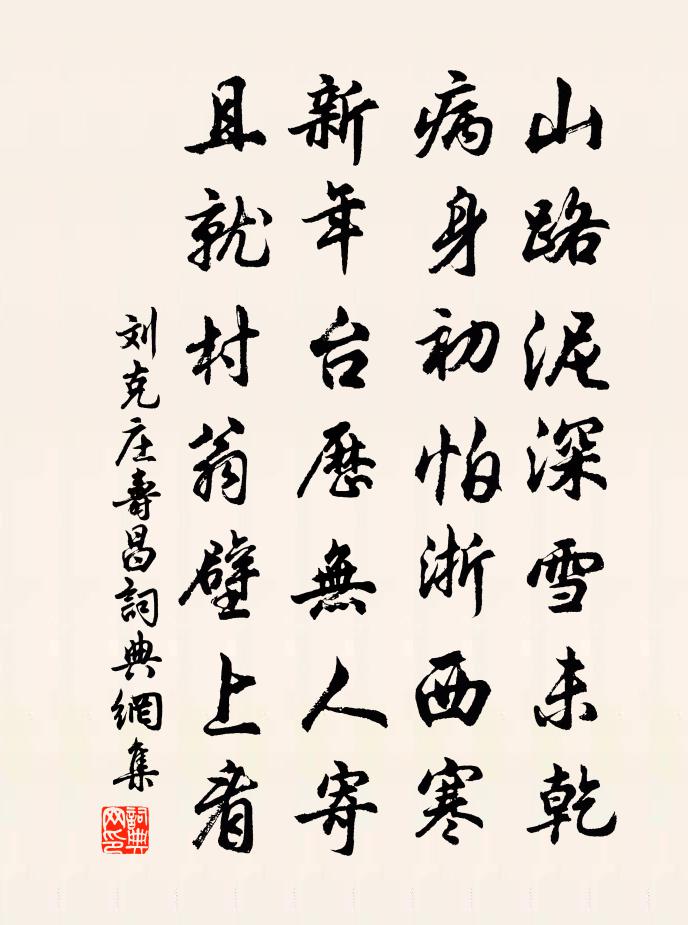 山路泥深雪未乾
病身初怕浙西寒
新年台歷無人寄
且就村翁壁上看
刘克庄壽昌詞典網集
詞典网印